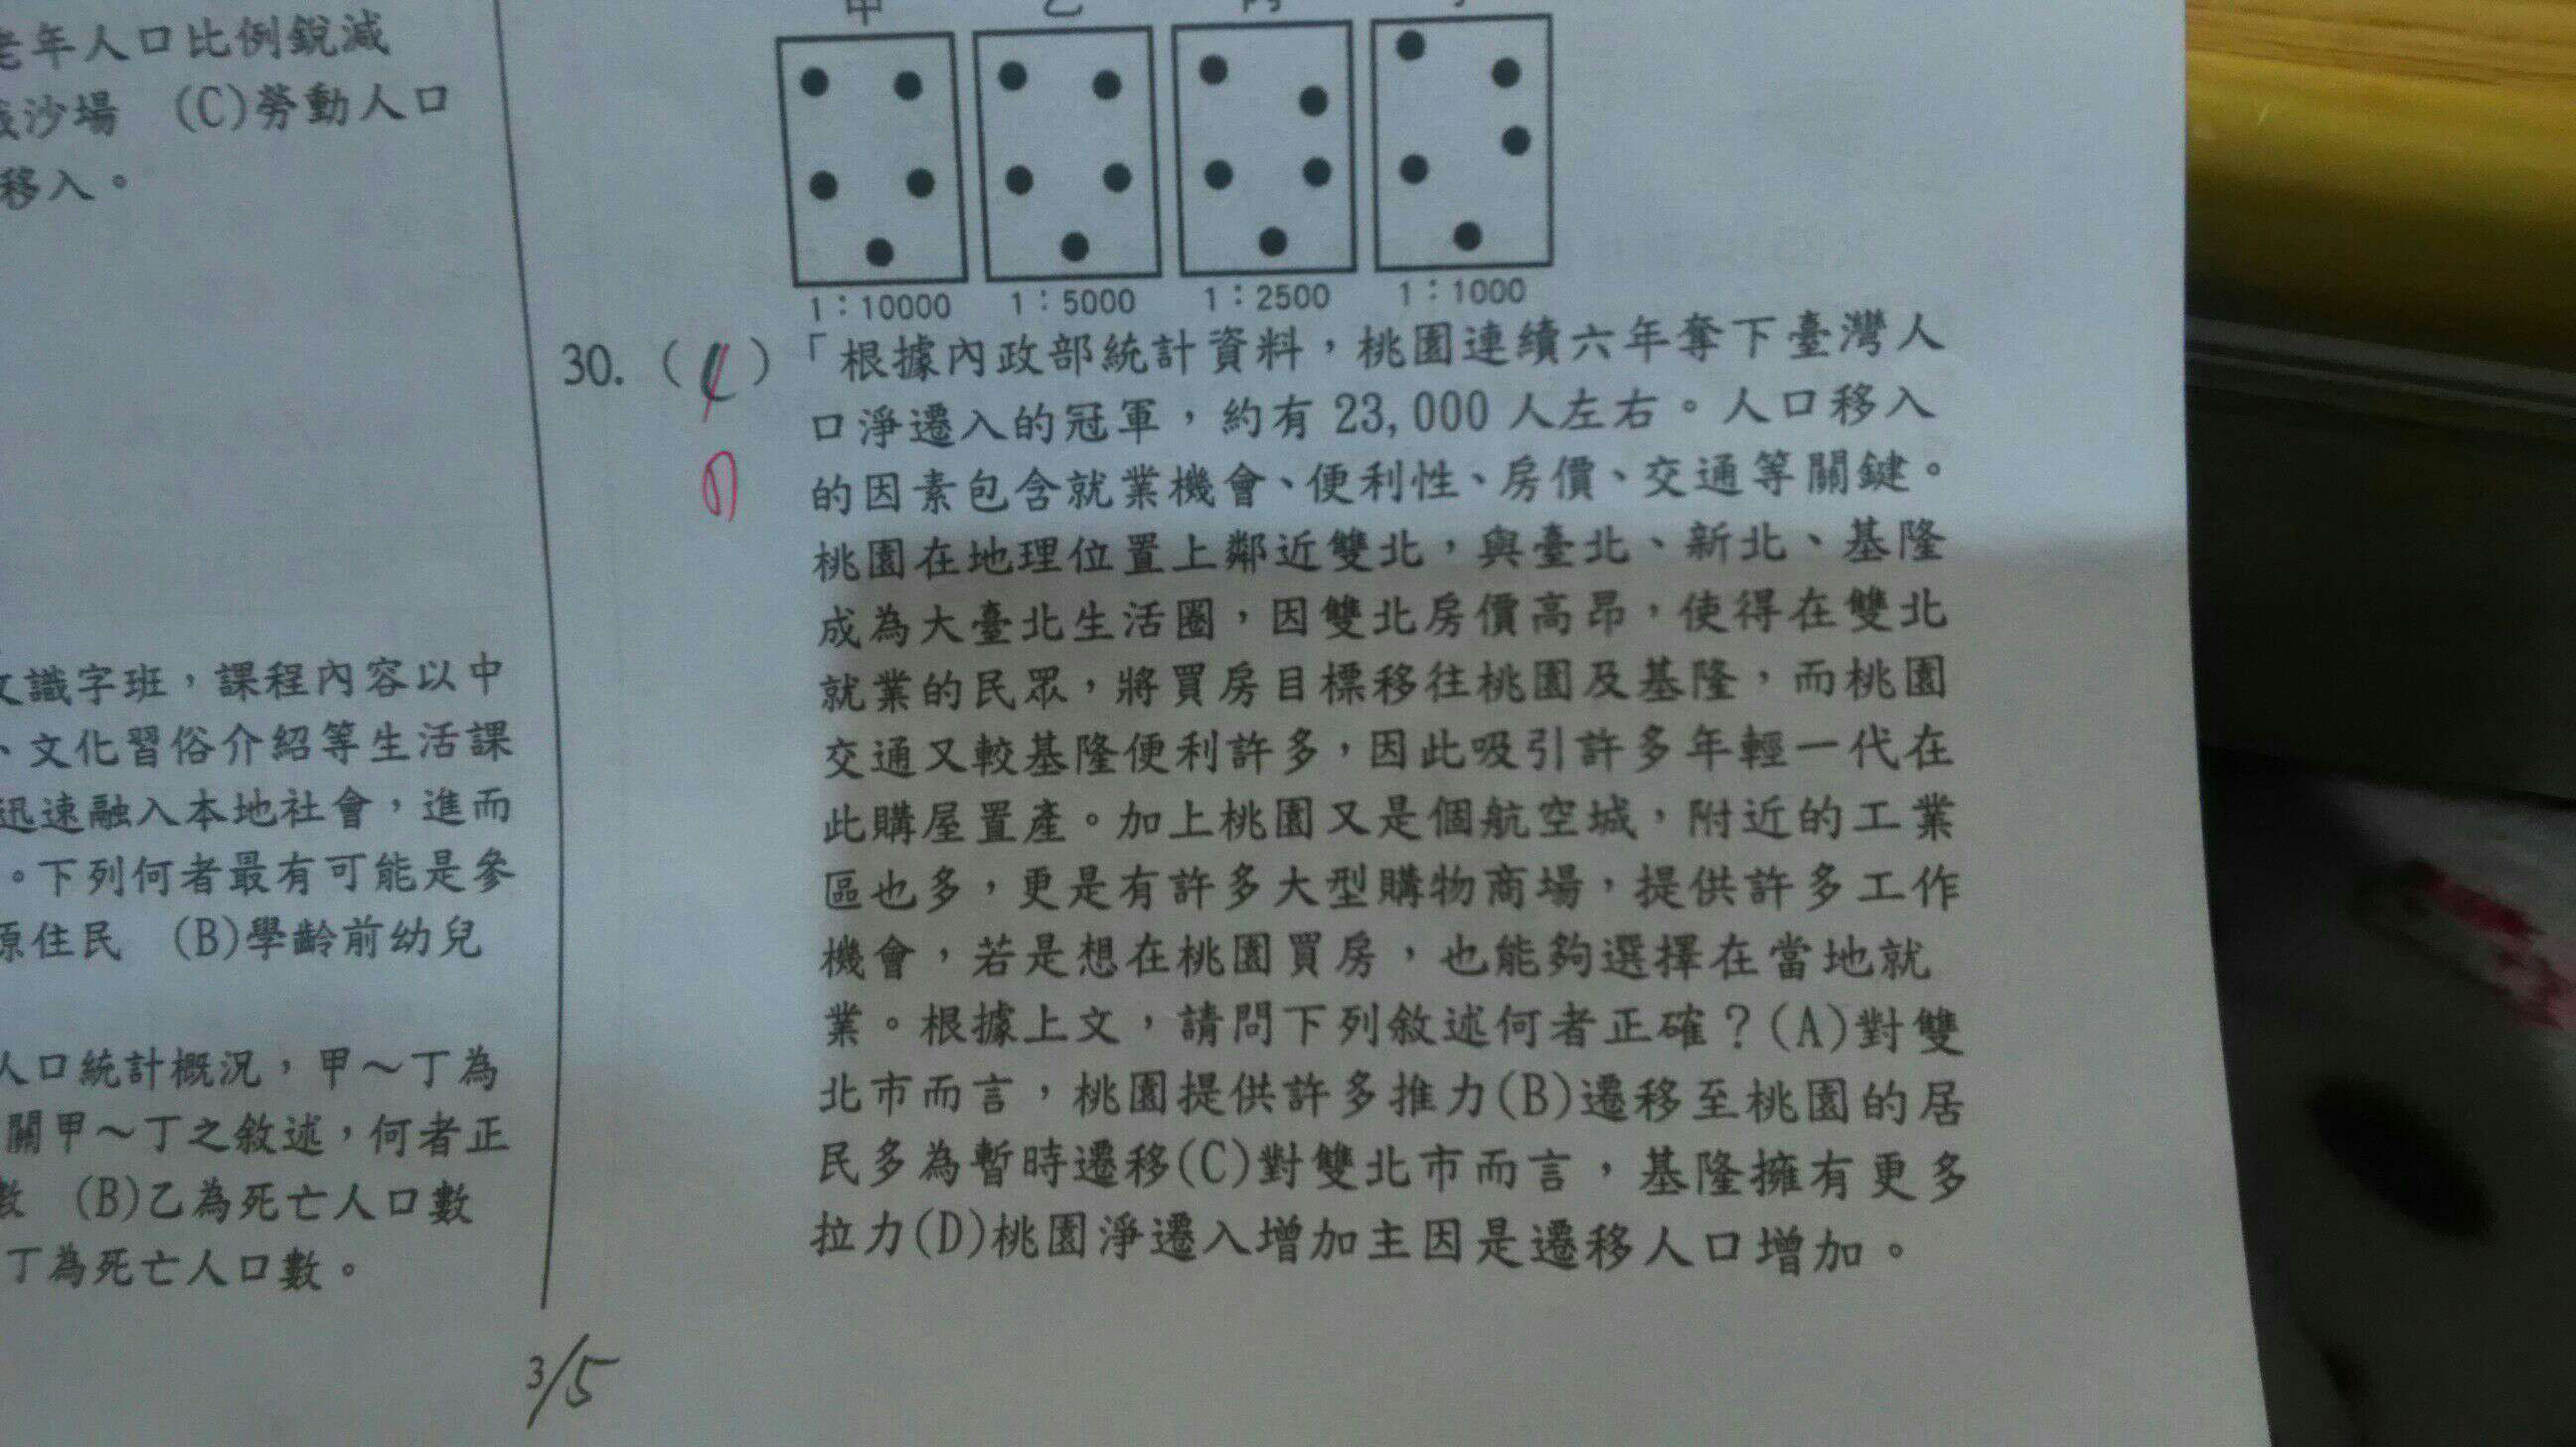 老年人口比例銳減
沙場 (C)勞動人口
移入。
識字班，課程內容以中
、文化習俗介紹等生活課
迅速融入本地社會，進而
。下列何者最有可能是參
原住民 (B)學齡前幼兒
人口統計概況，甲～丁為
關甲～丁之敘述，何者正
數 (B)乙為死亡人口數
丁為死亡人口數。
甲 乙 丙 丁
1：10000 1：5000 1：2500 1：1000
30. ( )「根據內政部統計資料，桃園連續六年奪下臺灣人
口淨遷入的冠軍，約有 23,000 人左右。人口移入
的因素包含就業機會、便利性、房價、交通等關鍵。
桃園在地理位置上鄰近雙北，與臺北、新北、基隆
成為大臺北生活圈，因雙北房價高昂，使得在雙北
就業的民眾，將買房目標移往桃園及基隆，而桃園
交通又較基隆便利許多，因此吸引許多年輕一代在
此購屋置產。加上桃園又是個航空城，附近的工業
區也多，更是有許多大型購物商場，提供許多工作
機會，若是想在桃園買房，也能夠選擇在當地就
業。根據上文，請問下列敘述何者正確？(A)對雙
北市而言，桃園提供許多推力(B)遷移至桃園的居
民多為暫時遷移(C)對雙北市而言，基隆擁有更多
拉力(D)桃園淨遷入增加主因是遷移人口增加。
3/5